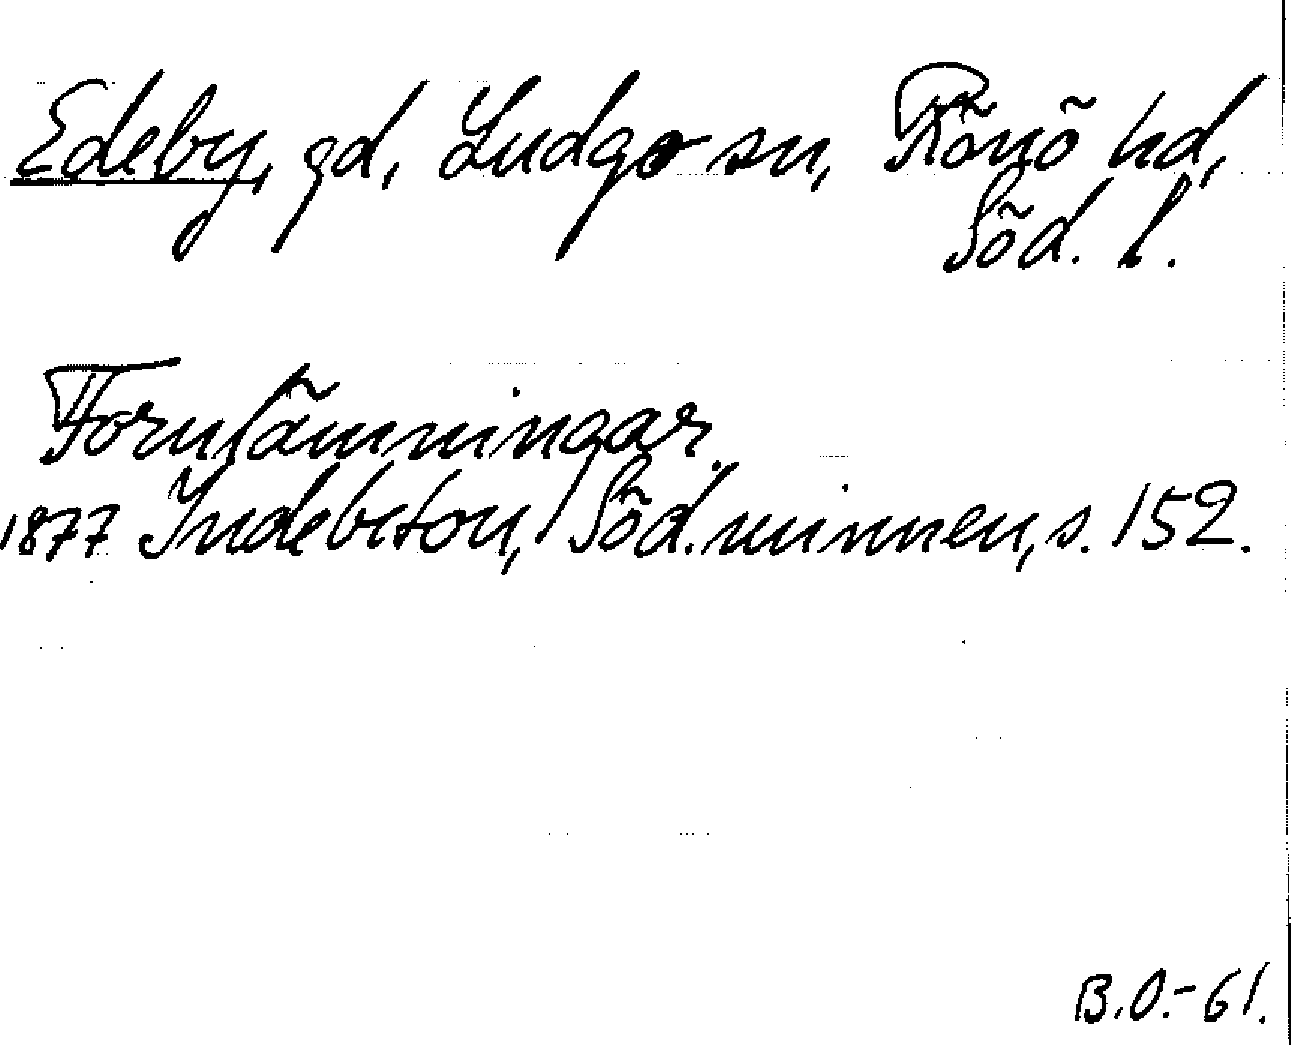 Edeby, gd, Ludgo sn, Rönö hd,
Söd. l.
Fornlämningar.
1877 Indebetou, Söd. minnen, s. 152.
B.O.-61.